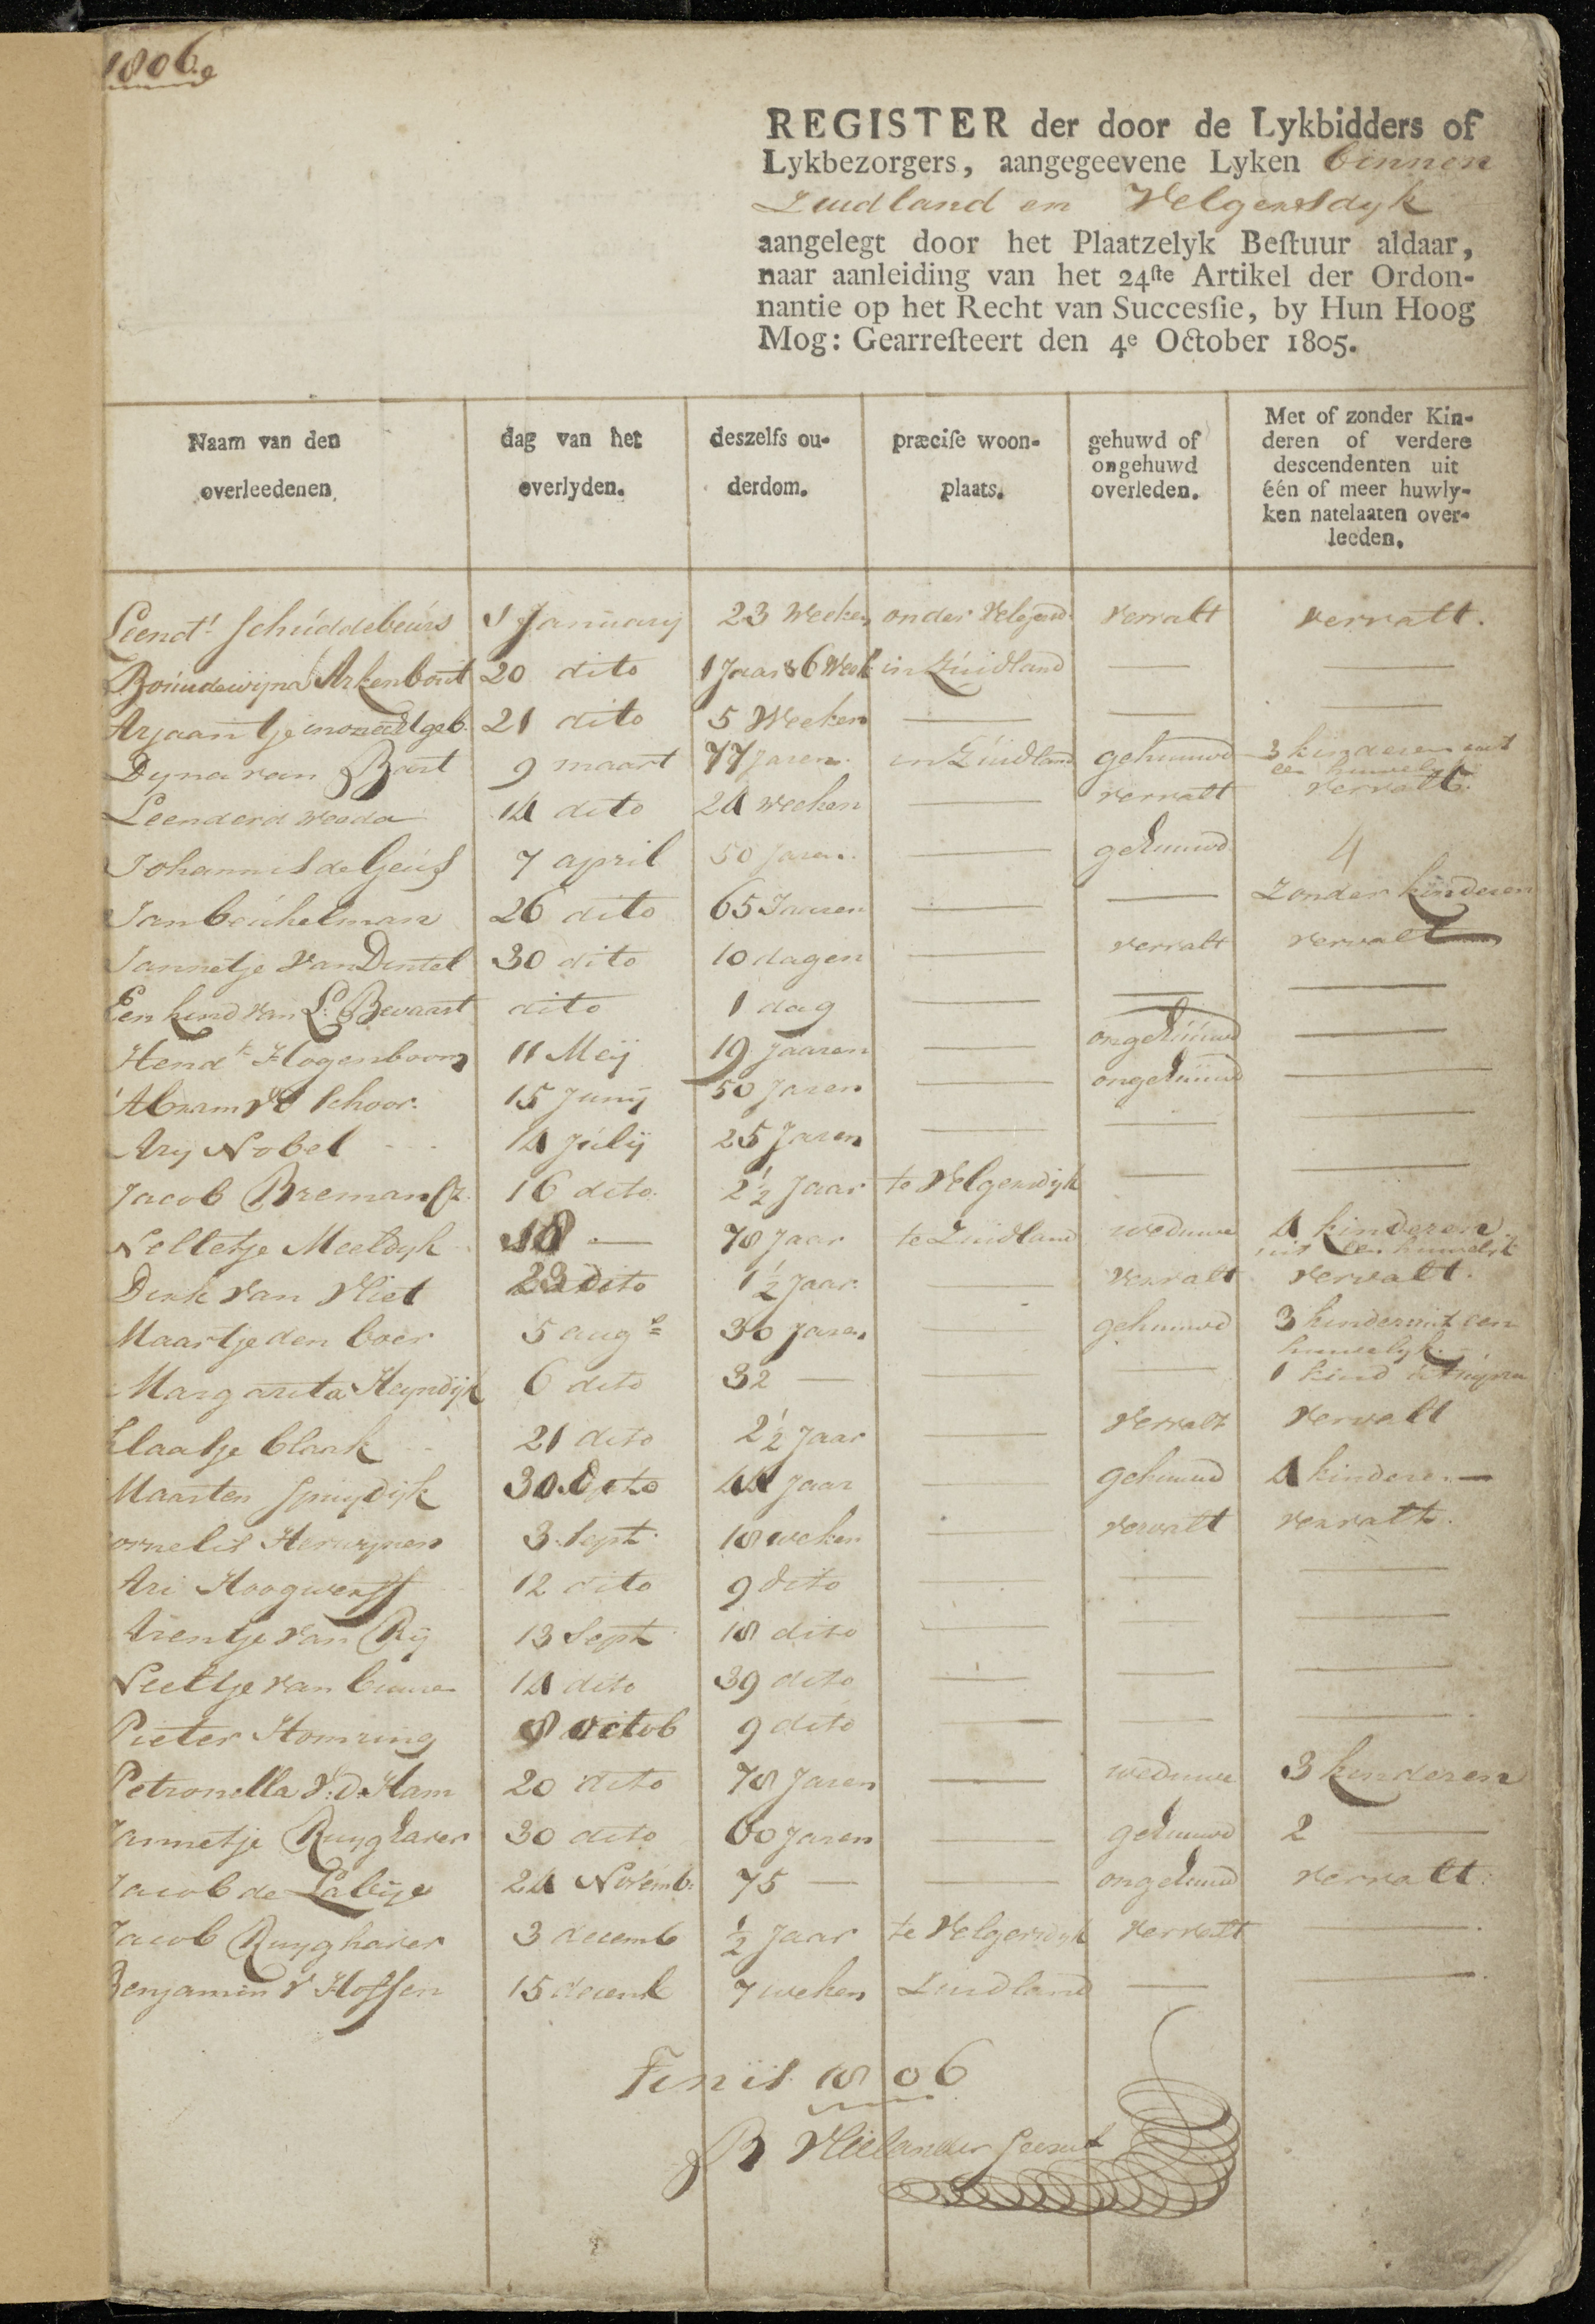 1806
REGISTER der door de Lykbidders of
Lykbezorgers, aangegeevene Lyken binnen
Zuidland en Velgersdyk
aangelegt door het Plaatzelyk Beſtuur aldaar,
naar aanleiding van het 24ſte Artikel der Ordon-
nantie op het Recht van Succesſie, by Hun Hoog
Mog: Gearreſteert den 4e October 1805.
Naam van den overleedenen
dag van het overlyden.
deszelfs ou- derdom.
præciſe woon- plaats.
gehuwd of ongehuwd overleden.
Met of zonder Kin- deren of verdere descendenten uit één of meer huwly- ken natelaaten over- leeden.
Leendt. Schúddebeúrs 1 Januarij 23 Weeken onder Velgersd. vervalt vervalt.
Boúudewijna Arkenboút 20 dito 1 Jaar & 6 Week in Zúidland — —
Arjaantje 21 dito 5 Weeken — — —
Dyna van Brut 9 maart 77 Jaren in Zúidland gehuuwd 3 kinderen uit
een huwelyk
Leenderd Weeda 14 dito 24 weeken — vervalt vervalt.
Johannis de Geús 7 april 50 Jaren. — gehuuwd 4
Jan beúkelman 26 dito 65 Jaaren — — Zonder kinderen
Jannetje Van Dintel 30 dito 10 dagen — vervalt vervalt
Een kind van L. Bevaart dito 1 dag — — —
Hendk Hogenboom 11 Meij 19 Jaaren — ongehúúwd —
Abram Vd Schoor. 15 Junij 50 Jaren — ongehúúwd —
Ary Nobel 14 Júlij 25 Jaren — — —
Jacob Breman Cz. 16 dito. 2 1/2 Jaar te Velgersdijk — —
Nelletje Meeldyk 18 — 78 Jaar te Zuidland weduwe 4 kinderen
uit een huwelijk
Dirk van Vliet 23 dito 1 1/2 Jaar. — vervalt vervalt.
Maartje den boer 5 auge 30 Jaren — gehuuwd 3 kinder uit een
huwelyk.
Margarita Heyndijk 6 dito 32 — — — 1 kind
Klaatje blaak 21 dito 2 1/2 Jaar — vervalt vervalt
Maarten Spuydijk 30 dito 44 Jaar — gehuuwd 4 kinderen —
ornelis Herwynen 3 Sept. 18 weken — vervalt vervalt.
Ari Hoogwerff 12 dito 9 dito — — —
Arentje van Rij 13 Sept. 18 dito — — —
Neeltje van buuren 14 dito 39 dito — — —
Pieter Homring 8 octob 9 dito — — —
Petronella v: d: Ham 20 dito 78 Jaren — weduwe 3 kinderen
Jannetje Ruyghaver 30 dito 60 Jaren — gehuuwd 2 —
Jacob de Labije 24 Novemb: 75 — — ongehuuwd vervalt:
Jacob Ruyghaver 3 decemb 1/2 Jaar te Velgersdyk vervalt —
Benjamin v Hoffen 15 decemb 7 weken Zuidland — —
Finis 1806
B Vlielander